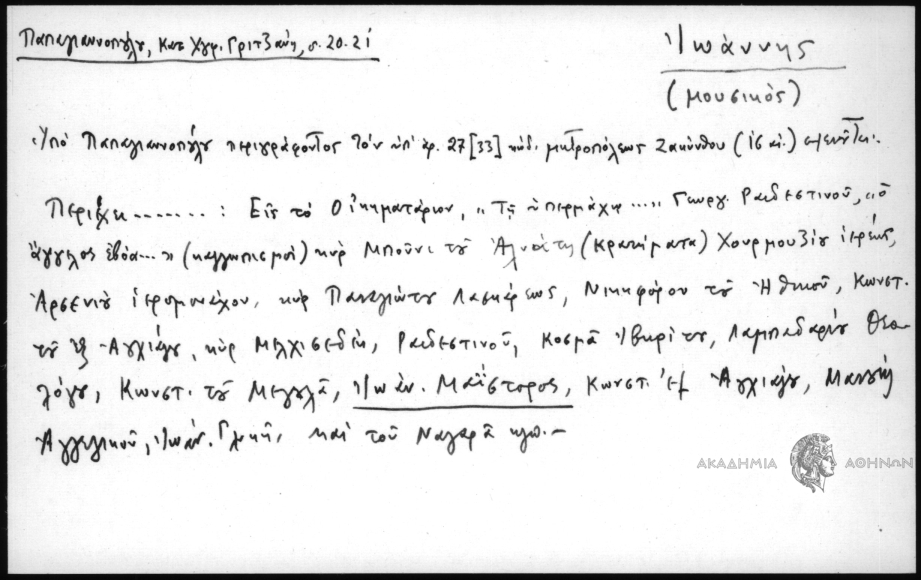 Παπαγιαννοπούλου, Κατ. Χγρ. Γριτζάνη, σ. 20-21
Ἰωάννης
(μουσικὸς)
Ὑπὸ Παπαγιαννοπούλου περιγράφοντος τὸν ὑπ' ἀρ. 27 [33] κώδ. μητροπόλεως Ζακύνθου (ΙϚ αἰ.)
Περιέχει.......: Εἰς τὸ Οἰκηματάριον, "Τῇ ὑπερμάχῳ...." Γεωργ. Ραιδεστινοῦ, "ὁ
ἄγγελος ἐβόα..." (καλλωπισμοὶ) κὺρ Μπούνι τοῦ Ἀλυάτη (Κρατήματα) Χουρμουζίου ἱερέως,
Ἀρσενίου ἱερομονάχου, κὺρ Παναγιώτου Λασκάρεως, Νικηφόρου τοῦ Ἠθικοῦ, Κωνστ.
τοῦ ἐξ Ἀγχιάλου, κὺρ Μελχισεδὲκ, Ραιδεστινοῦ, Κοσμᾶ Ἰβηρίτου, Λαμπαδαρίου Θεο-
λόγου, Κωνστ. τοῦ Μαγουλᾶ, Ἰωάν. Μαΐστορος, Κωνστ. ἐξ Ἀγχιάλου, Μανουὴλ
Ἀγγελικοῦ, Ἰωάν. Γλυκῆ, καὶ τοῦ Ναγαρᾶ κλπ.–
ΑΚΑΔΗΜΙΑ ΑΘΗΝΩΝ